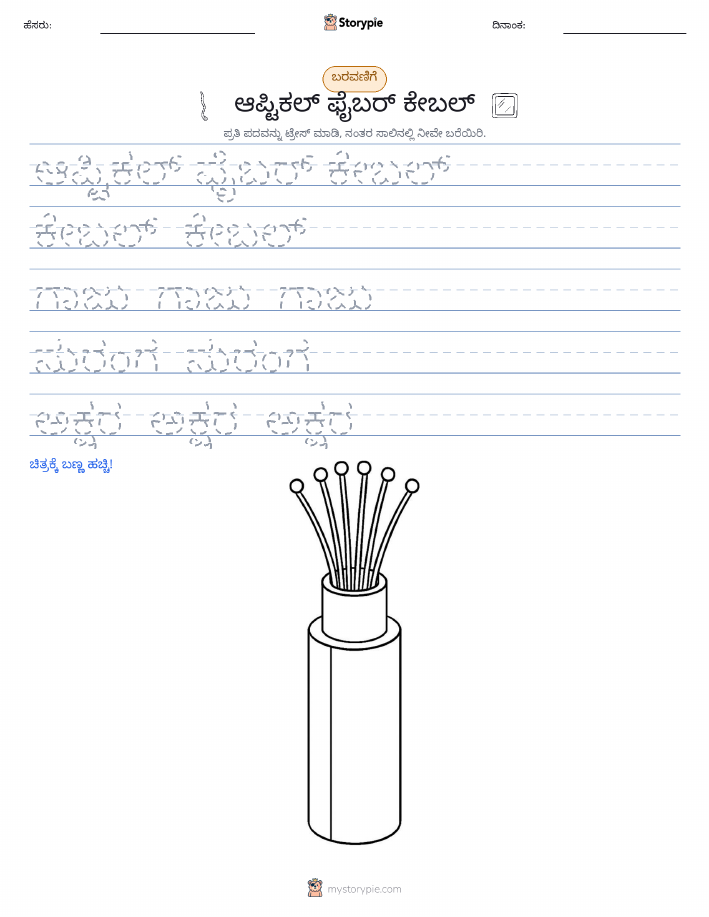 ಹೆಸರು:
Storypie
ದಿನಾಂಕ:
ಬರವಣಿಗೆ
ಆಪ್ಟಿಕಲ್ ಫೈಬರ್ ಕೇಬಲ್
ಪ್ರತಿ ಪದವನ್ನು ಟ್ರೇಸ್ ಮಾಡಿ, ನಂತರ ಸಾಲಿನಲ್ಲಿ ನೀವೇ ಬರೆಯಿರಿ.
ಆಪ್ಟಿಕಲ್ ಫೈಬರ್ ಕೇಬಲ್
ಕೇಬಲ್ ಕೇಬಲ್
ಗಾಜು ಗಾಜು ಗಾಜು
ಸುರಂಗ ಸುರಂಗ
ಅಕ್ಷರ ಅಕ್ಷರ ಅಕ್ಷರ
ಚಿತ್ರಕ್ಕೆ ಬಣ್ಣ ಹಚ್ಚಿ!
mystorypie.com